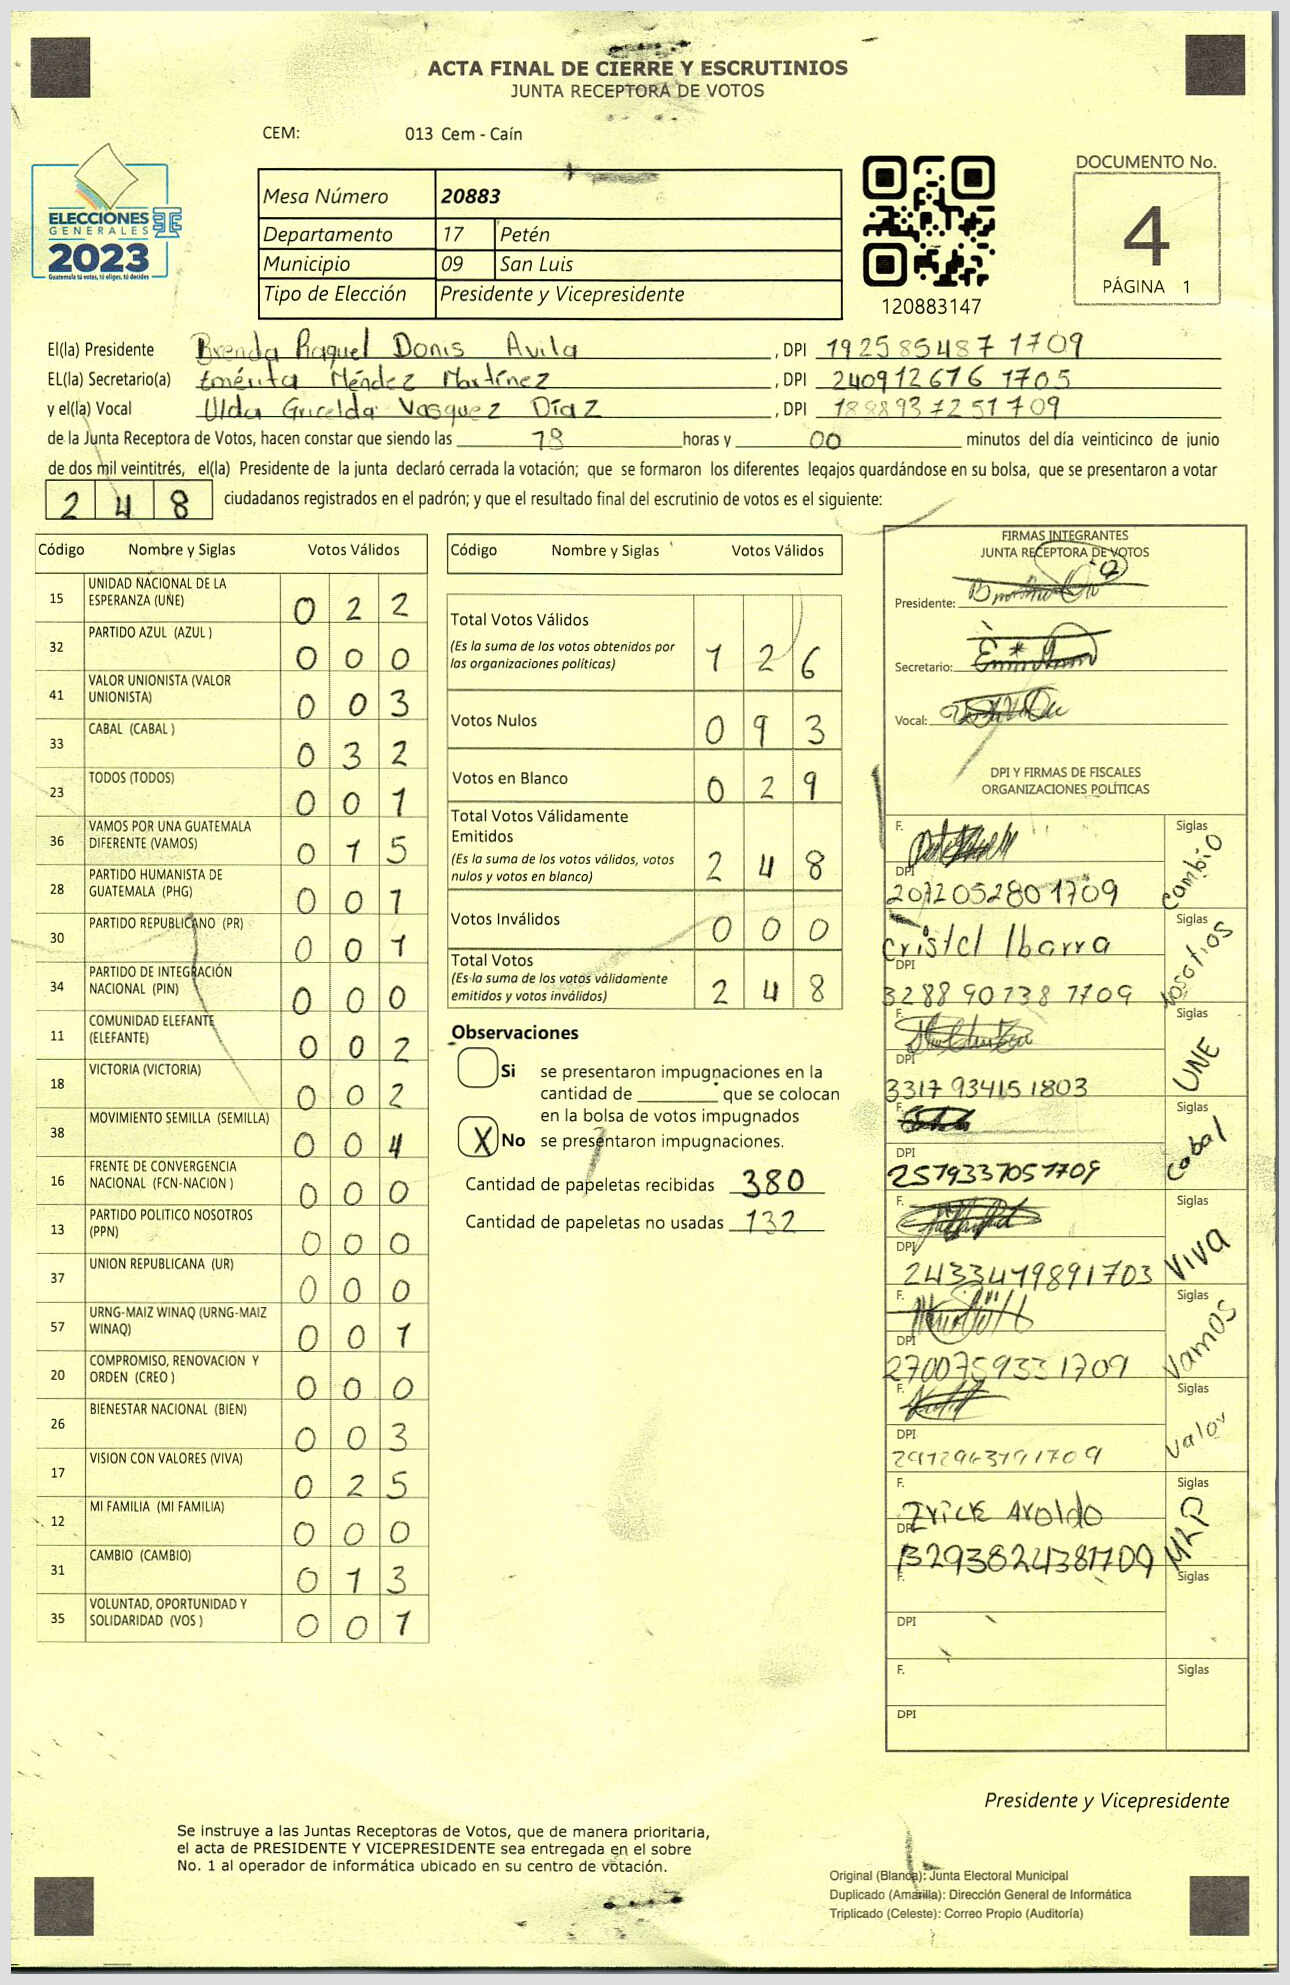 ACTA FINAL DE CIERRE Y ESCRUTINIOS
JUNTA RECEPTORA DE VOTOS
CEM: 013 Cem - Caín
ELECCIONES
GENERALES
2023
Guatemala tú votas, tú eliges, tú decides
Mesa Número 20883
Departamento 17 Petén
Municipio 09 San Luis
Tipo de Elección Presidente y Vicepresidente
120883147
DOCUMENTO No.
4
PÁGINA 1
El(la) Presidente Brenda Raquel Donis Avila , DPI 192585487 1709
EL(la) Secretario(a) Emérita Méndez Martínez , DPI 240912676 1705
y el(la) Vocal Ulda Gricelda Vasquez Díaz , DPI 1888937251709
de la Junta Receptora de Votos, hacen constar que siendo las 18 horas y 00 minutos del día veinticinco de junio
de dos mil veintitrés, el(la) Presidente de la junta declaró cerrada la votación; que se formaron los diferentes legajos guardándose en su bolsa, que se presentaron a votar
2 4 8 ciudadanos registrados en el padrón; y que el resultado final del escrutinio de votos es el siguiente:
Código Nombre y Siglas Votos Válidos
15 UNIDAD NACIONAL DE LA ESPERANZA (UNE) 0 2 2
32 PARTIDO AZUL (AZUL ) 0 0 0
41 VALOR UNIONISTA (VALOR UNIONISTA) 0 0 3
33 CABAL (CABAL ) 0 3 2
23 TODOS (TODOS) 0 0 1
36 VAMOS POR UNA GUATEMALA DIFERENTE (VAMOS) 0 1 5
28 PARTIDO HUMANISTA DE GUATEMALA (PHG) 0 0 1
30 PARTIDO REPUBLICANO (PR) 0 0 1
34 PARTIDO DE INTEGRACIÓN NACIONAL (PIN) 0 0 0
11 COMUNIDAD ELEFANTE (ELEFANTE) 0 0 2
18 VICTORIA (VICTORIA) 0 0 2
38 MOVIMIENTO SEMILLA (SEMILLA) 0 0 4
16 FRENTE DE CONVERGENCIA NACIONAL (FCN-NACION ) 0 0 0
13 PARTIDO POLITICO NOSOTROS (PPN) 0 0 0
37 UNION REPUBLICANA (UR) 0 0 0
57 URNG-MAIZ WINAQ (URNG-MAIZ WINAQ) 0 0 1
20 COMPROMISO, RENOVACION Y ORDEN (CREO ) 0 0 0
26 BIENESTAR NACIONAL (BIEN) 0 0 3
17 VISION CON VALORES (VIVA) 0 2 5
12 MI FAMILIA (MI FAMILIA) 0 0 0
31 CAMBIO (CAMBIO) 0 1 3
35 VOLUNTAD, OPORTUNIDAD Y SOLIDARIDAD (VOS ) 0 0 1
Código Nombre y Siglas Votos Válidos
Total Votos Válidos 1 2 6
(Es la suma de los votos obtenidos por
las organizaciones políticas)
Votos Nulos 0 9 3
Votos en Blanco 0 2 9
Total Votos Válidamente
Emitidos
(Es la suma de los votos válidos, votos
nulos y votos en blanco) 2 4 8
Votos Inválidos 0 0 0
Total Votos
(Es la suma de los votos válidamente
emitidos y votos inválidos) 2 4 8
Observaciones
Si se presentaron impugnaciones en la
cantidad de ________ que se colocan
en la bolsa de votos impugnados
X No se presentaron impugnaciones.
Cantidad de papeletas recibidas 380
Cantidad de papeletas no usadas 132
FIRMAS INTEGRANTES
JUNTA RECEPTORA DE VOTOS
Presidente:
Secretario:
Vocal:
DPI Y FIRMAS DE FISCALES
ORGANIZACIONES POLÍTICAS
F. Siglas
DPI Cambio
2072052801709
Cristel Ibarra Siglas
DPI Nosotros
3288907387709
F. Siglas
DPI UNE
3317934151803
F. Siglas
DPI Cabal
2579337051709
F. Siglas
DPI VIVA
2433479891703
F. Siglas
DPI Vamos
2700759331709
F. Siglas
DPI Valor
F. Siglas
Erick Aroldo
DPI MLP
3293824381709
F. Siglas
DPI
F. Siglas
DPI
Presidente y Vicepresidente
Se instruye a las Juntas Receptoras de Votos, que de manera prioritaria,
el acta de PRESIDENTE Y VICEPRESIDENTE sea entregada en el sobre
No. 1 al operador de informática ubicado en su centro de votación.
Original (Blanca): Junta Electoral Municipal
Duplicado (Amarilla): Dirección General de Informática
Triplicado (Celeste): Correo Propio (Auditoría)